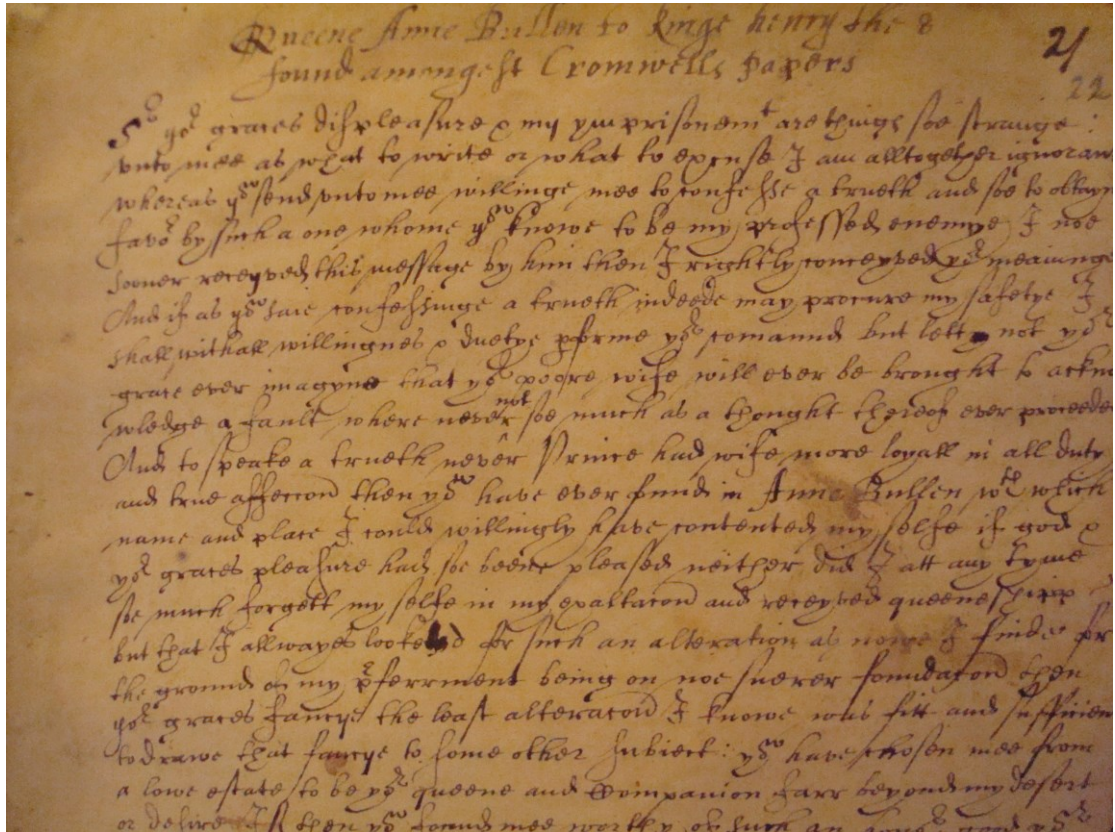 Queene Anne Bullen to Kinge henry the 8
found amongest Cromwells papers
21
22
Sr yor graces displeasure & my ymprisonemt are things soe strange
unto mee as what to write or what to excuse I am alltogether ignoran
whereas you send unto mee willinge mee to confesse a trueth and soe to obtayn
favor by such a one whome you knowe to be my professed enemye I noe
sooner receyved this message by him then I rightly conceyved yor meaninge
And if as you saie confessinge a trueth indeede may procure my safetye I
shall with all willingnes & duetye pforme yor comaund but lett not yor
grace ever imagyne that yor poore wife will ever be brought to ackno
wledge a fault where never not soe much as a thought thereof ever proceeded
And to speake a trueth never Prince had wife more loyall in all duty
and true affeccon then you have ever found in Anne Bullen wth which
name and place I could willingly have contented my selfe if god &
yor graces pleasure had soe beene pleased neither did I att any tyme
soe much forgett my selfe in my exaltacon and receyved queeneshipp
but that I allwayes looked for such an alteration as nowe I finde for
the ground of my pferrment being on noe suerer foundacon then
yor graces fancye the least alteracon I knowe was fitt and sufficien
to drawe that fancye to some other subiect: you have chosen mee from
a lowe estate to be yor queene and Companion farr beyond my desert
or desire If then you found mee worthy of such an